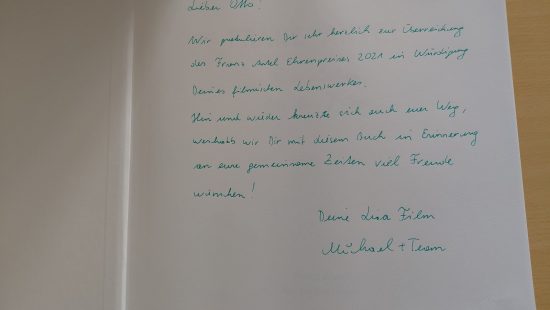 Lieber Otto!
Wir gratulieren Dir sehr herzlich zur Überreichung
des Franz Antel Ehrenpreises 2021 in Würdigung
Deines filmischen Lebenswerkes.
Hin und wieder kreuzte sich auch euer Weg,
weshalb wir Dir mit diesem Buch in Erinnerung
an eure gemeinsame Zeiten viel Freude
wünschen!
Deine Lisa Film
Michael + Team